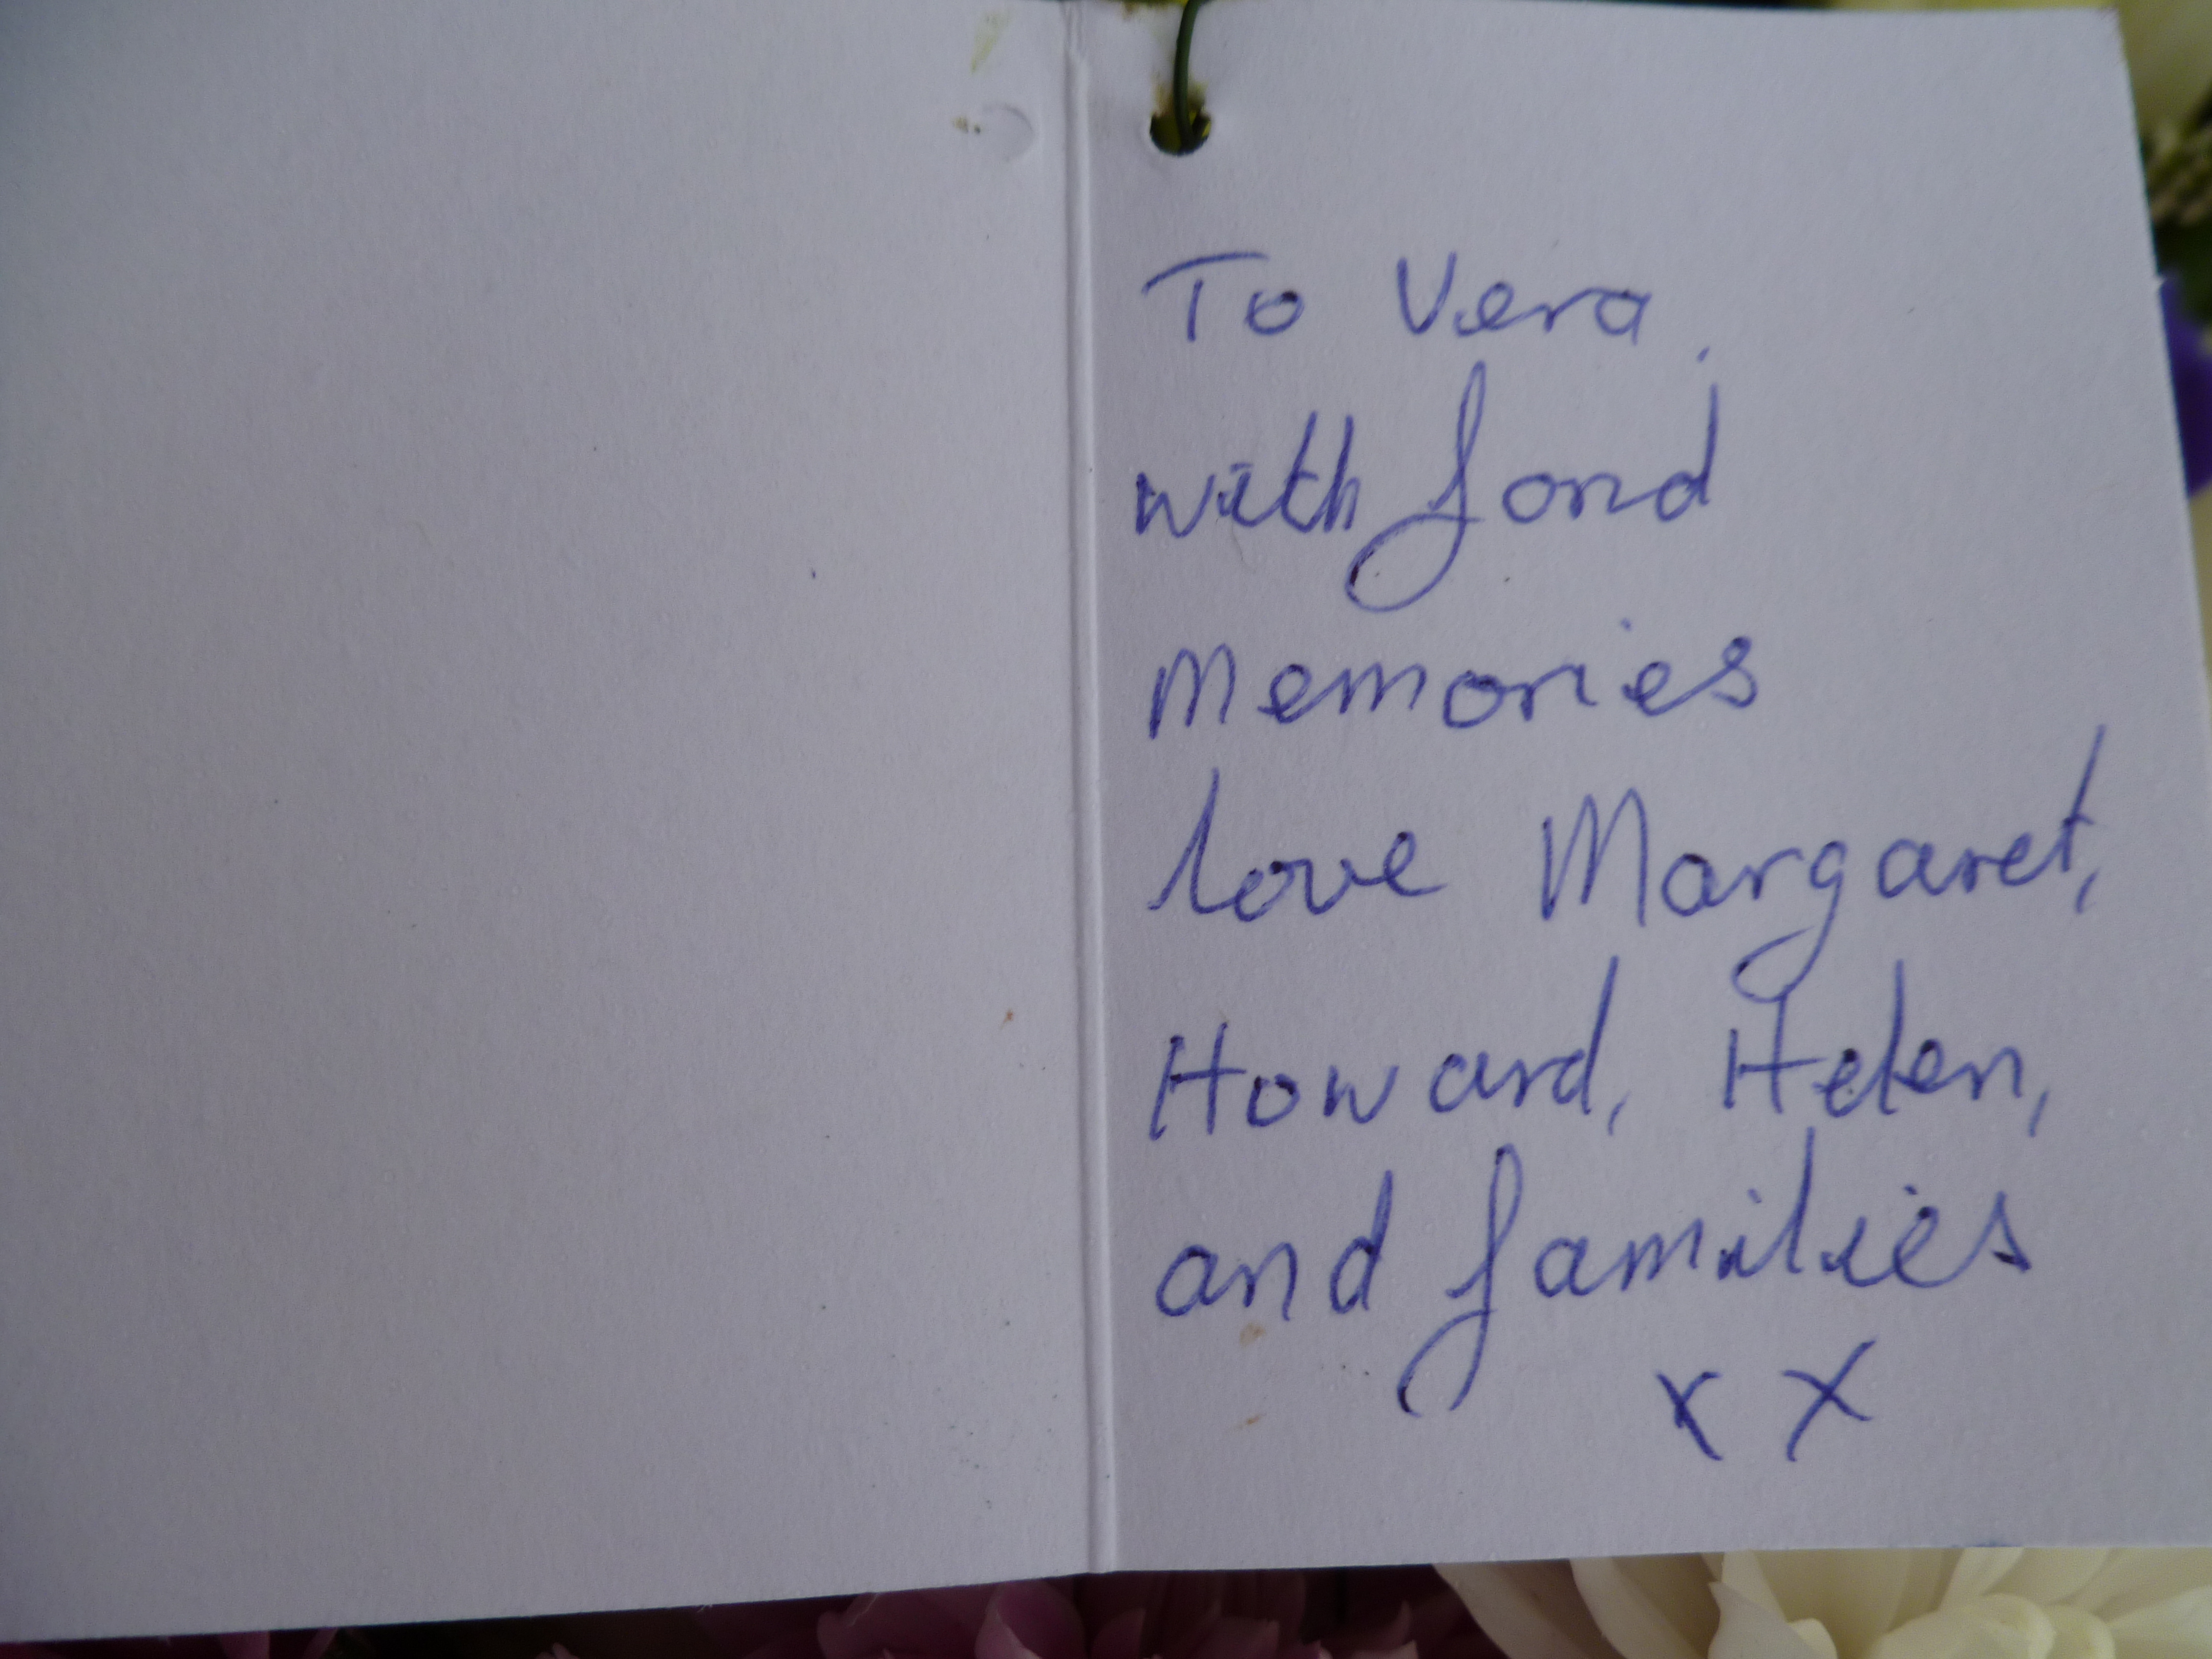 To Vera,
with fond
Memories
love Margaret,
Howard, Helen,
and families
x x